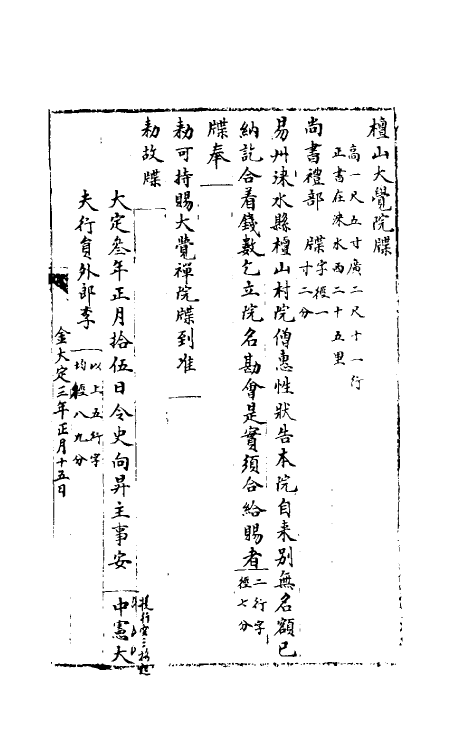 檀山大覺院牒
高一尺五寸廣二尺十一行
正書在淶水西二十五里
尚書禮部　牒字徑一寸二分
易州淶水縣檀山村院僧惠性狀告本院自来别無名額已
納訖合着錢數乞立院名勘會是實須合給賜者二行字徑七分
牒奉
勅可持賜大覺禪院牒到准
勅故牒
大定叄年正月拾伍日令史向昇主事安　中憲大
夫行員外郎李　以上五行字均徑八九分
金大定三年正月十五日